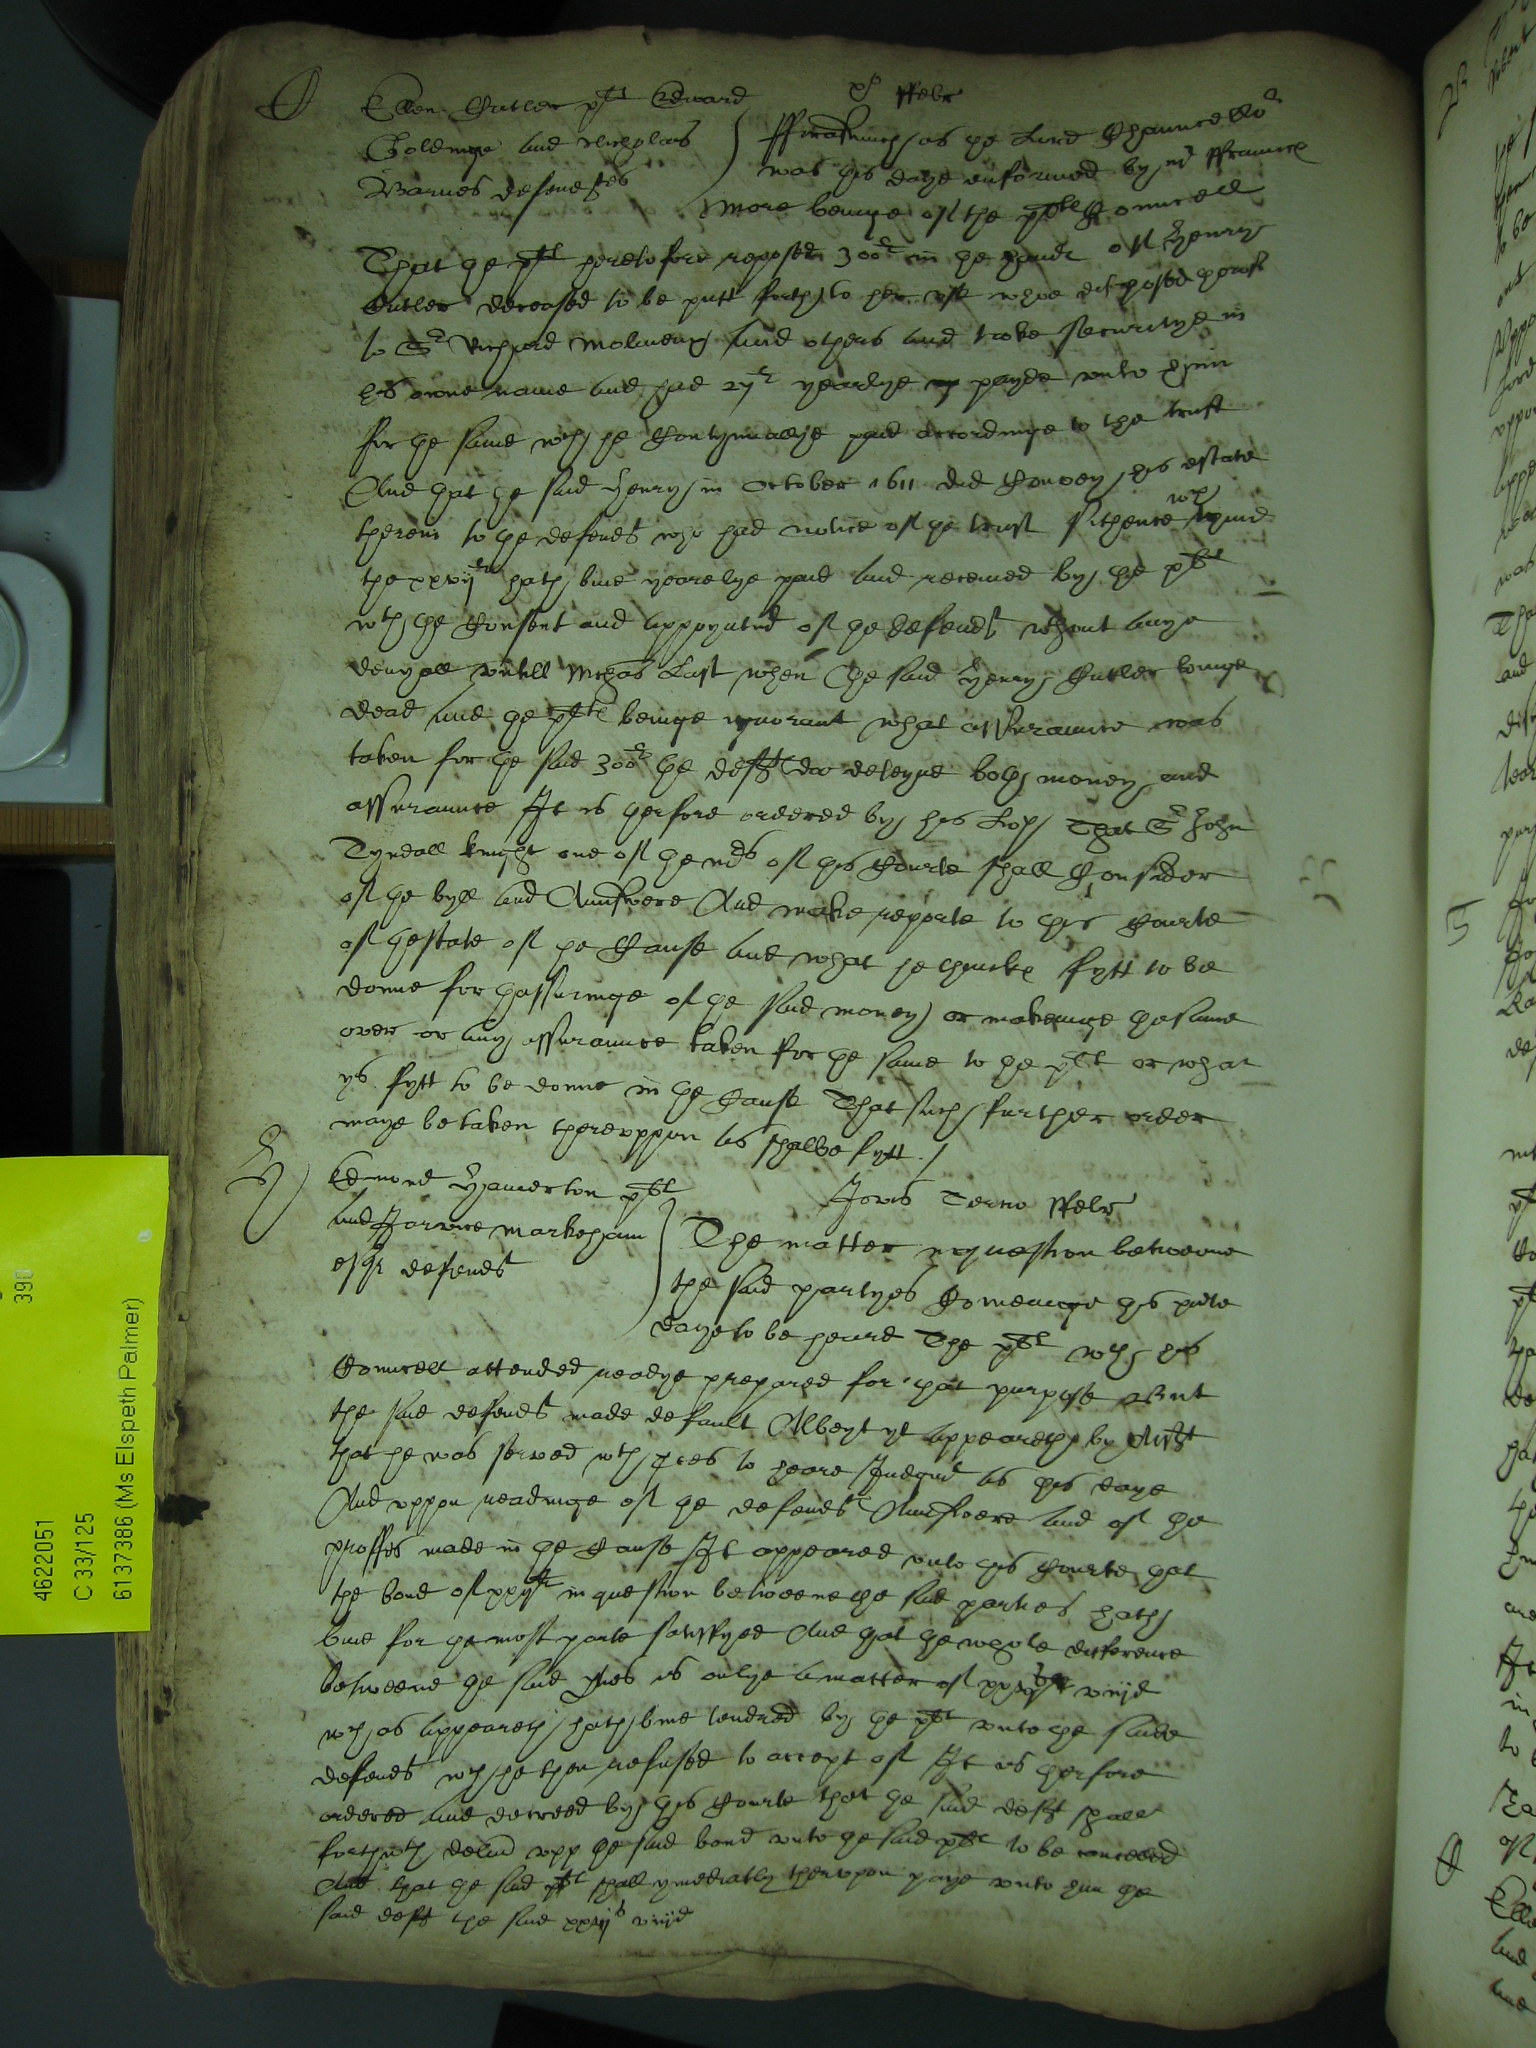 Ellen Cutler plt Edward
Goldinge and Nicholas
Barnes defendtes
xo ffebr
fforasmuch as the Lord Chauncellor
was this daye enformed by mr ffrauncis
More beinge of the pltes Councell
That the plt heretofore reposed 300li in the handes of Henry
Cutler deceased to be putt forth to her use whoe disposed therof
to Sr Richard Molineux and others and tooke securitye in
his owne name and had 27li yearlye payde unto him
for the same wch he Contynuallye paid accordinge to the trust
And that the said Henry in October 1611 did Convey his estate
therein to the defendts who had notice of the trust sithence wch tyme
the xxvijli hath bine yearelye paid and receaved by the plt
wth the Consent and appoyntmt of the defendts wthout anye
denyall untill Michas Last when the said Henry Cutler beinge
dead and the plt beinge ignorant what assuraunce was
taken for the said 300li the defts doe deteyne both money and
assuraunce It is therfore ordered by his Lop That Sr John
Tyndall knight one of the mrs of this Courte shall Consider
of the byll and Aunswere And make reporte to this Courte
of thestate of the Cause and what he thinkes fytt to be
donne for thassuringe of the said money or makeinge the same
over or any assuraunce taken for the same to the plt or what
ys fytt to be donne in the Cause That such further order
maye be taken thereuppon as shalbe fytt./
Edmond Hamerton plt
and Jarvice Markeham
esqr defendt
Jovis Tercio ffebr
The matter in question betweene
the said partyes Comeinge this prsente
daye to be heard The plt wth his
Councell attended readye prepared for that purpose But
the said defendt made default Albeyt yt appeareth by Affidt
that he was served wth proces to heare Judgmt as this daye
And uppon readinge of the defendts Aunswere and of the
prooffes made in the Cause It appeared unto this Courte that
the bond of xxijli in question betweene the said parties hath
bine for the most parte satisfyed And that the whole difference
betweene the said pties is onlye a matter of xxvijs viijd
wch as appeareth hath bine tendred by the plt unto the saide
defendt wch he then refused to accept of It is therfore
ordered and decreed by this Courte that the said deft shall
forthwth deliver upp the said bond unto the said plt to be canceled
And that the said plt shall ymediatly therupon paye unto him the
said deft the said xxvijs viijd
390
4622051
C 33/125
6137386 (Ms Elspeth Palmer)